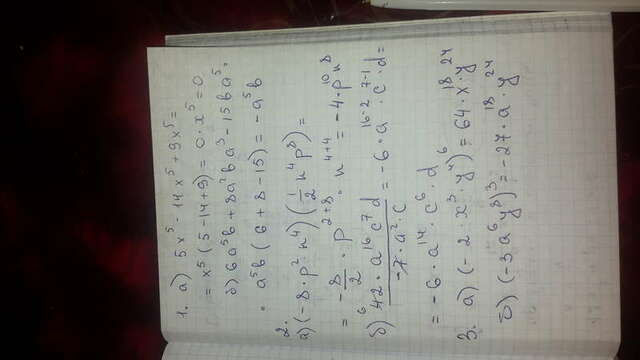 1. а) 5x⁵ - 14x⁵ + 9x⁵ =
= x⁵ (5 - 14 + 9) = 0 · x⁵ = 0
б) 6a⁵b + 8a²ba³ - 15ba⁵ =
= a⁵b (6 + 8 - 15) = -a⁵b
2.
а) (-8 · p² · n⁴) (1/2 n⁴ p⁸) =
= -8/2 · p²⁺⁸ · n⁴⁺⁴ = -4 · p¹⁰ n⁸
б) 42 · a¹⁶ c⁷ d / -7 · a² · c = -6 · a¹⁶⁻² · c⁷⁻¹ · d =
= -6 · a¹⁴ · c⁶ · d
3. а) (-2 · x³ · y⁴)⁶ = 64 · x¹⁸ · y²⁴
б) (-3a⁶y⁸)³ = -27 · a¹⁸ · y²⁴